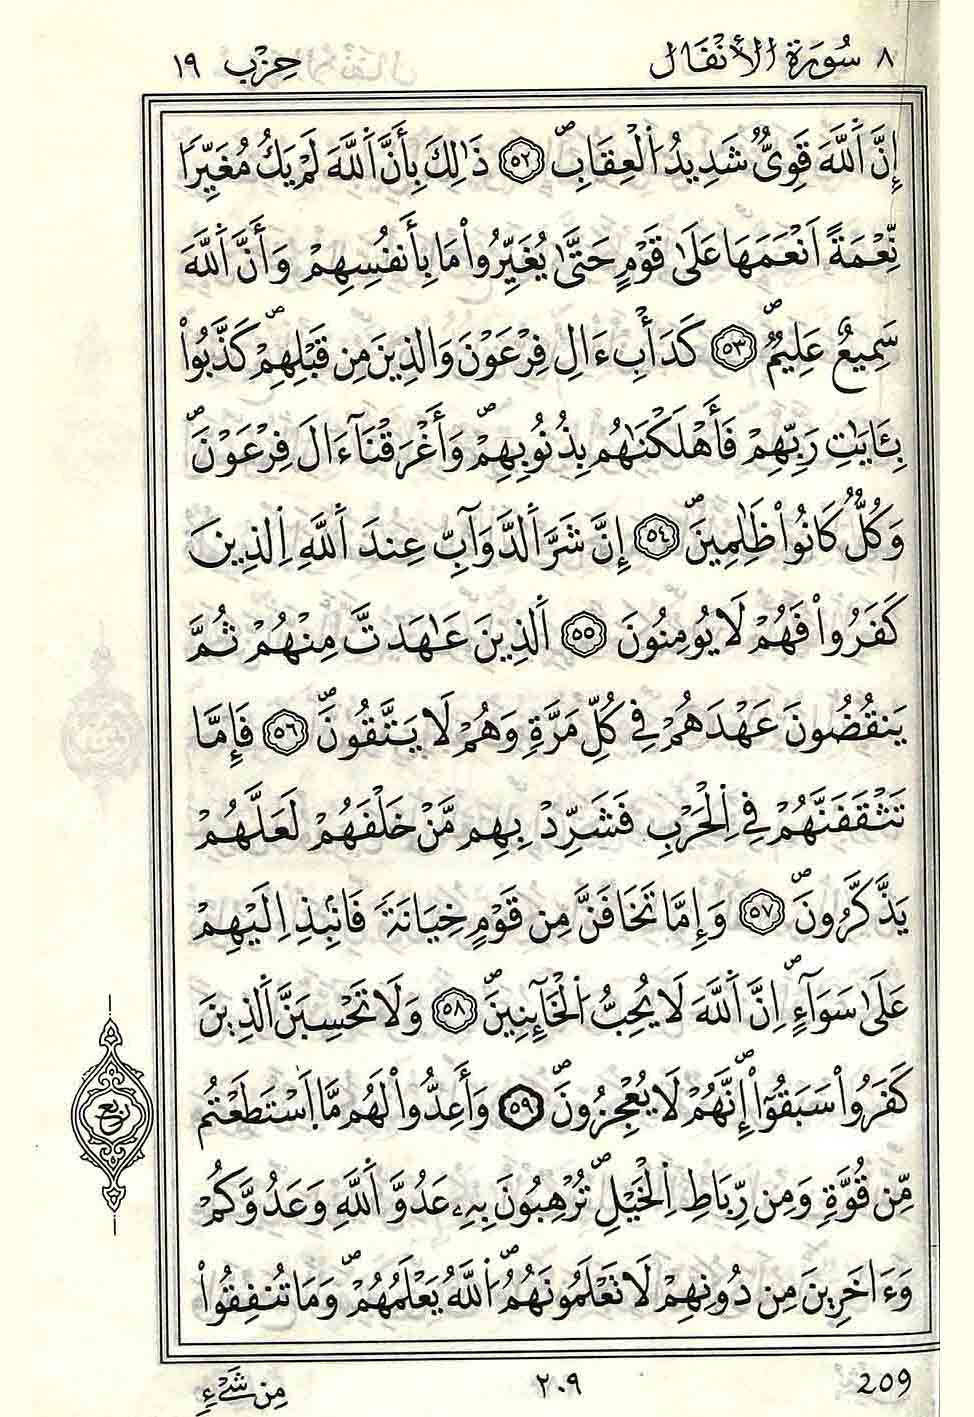 ٨ سُورَةُ الأَنْفَالِ حِزْب ١٩
إِنَّ اَ۬للَّهَ قَوِيّٞ شَدِيدُ اُ۬لْعِقَابِۖ ٥٢ ذَٰلِكَ بِأَنَّ اَ۬للَّهَ لَمْ يَكُ مُغَيِّراٗ
نِّعْمَةً اَنْعَمَهَا عَلَىٰ قَوْمٍ حَتَّىٰ يُغَيِّرُواْ مَا بِأَنفُسِهِمْ وَأَنَّ اَ۬للَّهَ
سَمِيعٌ عَلِيمٞۖ ٥٣ كَدَأْبِ ءَالِ فِرْعَوْنَ وَالذِينَ مِن قَبْلِهِمْۖ كَذَّبُواْ
بِـَٔايَٰتِ رَبِّهِمْ فَأَهْلَكْنَٰهُم بِذُنُوبِهِمْۖ وَأَغْرَقْنَآ ءَالَ فِرْعَوْنَۖ
وَكُلّٞ كَانُواْ ظَٰلِمِينَۖ ٥٤ إِنَّ شَرَّ اَ۬لدَّوَآبِّ عِندَ اَ۬للَّهِ اِ۬لذِينَ
كَفَرُواْ فَهُمْ لَا يُومِنُونَ ٥٥ اَ۬لذِينَ عَٰهَدتَّ مِنْهُمْ ثُمَّ
يَنقُضُونَ عَهْدَهُمْ فِي كُلِّ مَرَّةٖ وَهُمْ لَا يَتَّقُونَۖ ٥٦ فَإِمَّا
تَثْقَفَنَّهُمْ فِي اِ۬لْحَرْبِ فَشَرِّدْ بِهِم مَّنْ خَلْفَهُمْ لَعَلَّهُمْ
يَذَّكَّرُونَۖ ٥٧ وَإِمَّا تَخَافَنَّ مِن قَوْمٍ خِيَانَةٗ فَانۢبِذِ اِلَيْهِمْ
عَلَىٰ سَوَآءٍۖ اِنَّ اَ۬للَّهَ لَا يُحِبُّ اُ۬لْخَآئِنِينَۖ ٥٨ وَلَا تَحْسِبَنَّ اَ۬لذِينَ
كَفَرُواْ سَبَقُوٓاْۖ إِنَّهُمْ لَا يُعْجِزُونَۖ ٥٩ وَأَعِدُّواْ لَهُم مَّا اَ۪سْتَطَعْتُم
مِّن قُوَّةٖ وَمِن رِّبَاطِ اِ۬لْخَيْلِۖ تُرْهِبُونَ بِهِۦ عَدُوَّ اَ۬للَّهِ وَعَدُوَّكُمْ
وَءَاخَرِينَ مِن دُونِهِمْ لَا تَعْلَمُونَهُمُۖ اُ۬للَّهُ يَعْلَمُهُمْۖ وَمَا تُنفِقُواْ
ربع
209 ٢٠٩ مِن شَےْءٖ